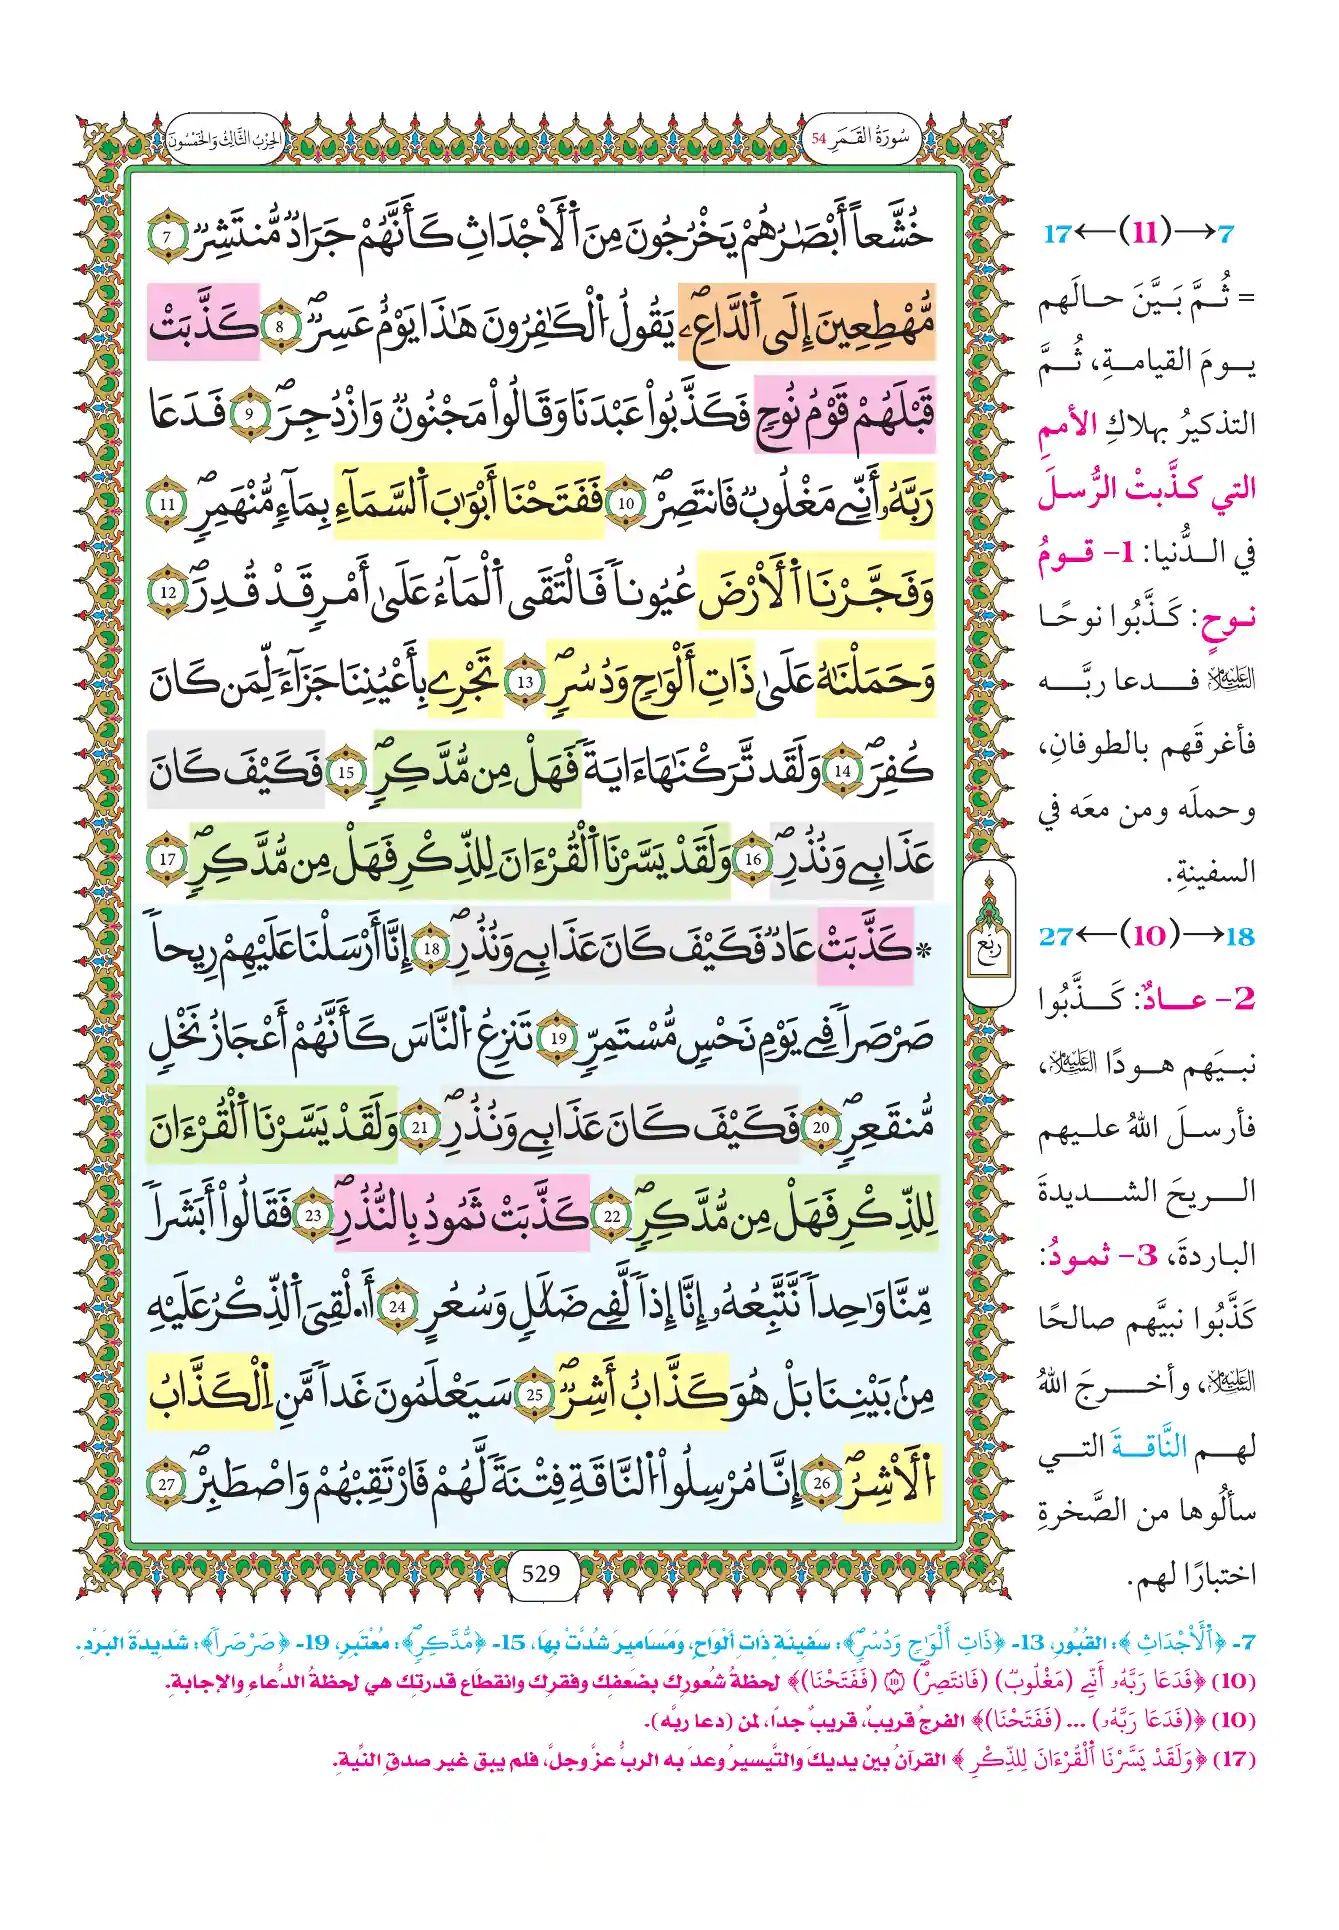 سُورَةُ القَمَرِ 54
الحِزْبُ الثَّالِثُ وَالخَمْسُونَ
خُشَّعاً أَبْصَٰرُهُمْ يَخْرُجُونَ مِنَ اَ۬لَأجْدَاثِ كَأَنَّهُمْ جَرَادٞ مُّنتَشِرٞ 7
مُّهْطِعِينَ إِلَى اَ۬لدَّاعِۦ يَقُولُ اُ۬لْكَٰفِرُونَ هَٰذَا يَوْمٌ عَسِرٞۖ 8 كَذَّبَتْ
قَبْلَهُمْ قَوْمُ نُوحٖ فَكَذَّبُواْ عَبْدَنَا وَقَالُواْ مَجْنُونٞ وَازْدُجِرَۖ 9 فَدَعَا
رَبَّهُۥٓ أَنِّے مَغْلُوبٞ فَانتَصِرْۖ 10 فَفَتَحْنَآ أَبْوَٰبَ اَ۬لسَّمَآءِ بِمَآءٖ مُّنْهَمِرٖۖ 11
وَفَجَّرْنَا اَ۬لَأرْضَ عُيُوناٗ فَالْتَقَى اَ۬لْمَآءُ عَلَىٰٓ أَمْرٖ قَدْ قُدِرَۖ 12
وَحَمَلْنَٰهُ عَلَىٰ ذَاتِ أَلْوَٰحٖ وَدُسُرٖۖ 13 تَجْرِے بِأَعْيُنِنَا جَزَآءٗ لِّمَن كَانَ
كُفِرَۖ 14 وَلَقَد تَّرَكْنَٰهَآ ءَايَةٗ فَهَلْ مِن مُّدَّكِرٖۖ 15 فَكَيْفَ كَانَ
عَذَابِے وَنُذُرِۖ 16 وَلَقَدْ يَسَّرْنَا اَ۬لْقُرْءَانَ لِلذِّكْرِ فَهَلْ مِن مُّدَّكِرٖۖ 17
* كَذَّبَتْ عَادٞ فَكَيْفَ كَانَ عَذَابِے وَنُذُرِۖ 18 إِنَّآ أَرْسَلْنَا عَلَيْهِمْ رِيحاٗ
صَرْصَراٗ فِے يَوْمِ نَحْسٖ مُّسْتَمِرّٖ 19 تَنزِعُ اُ۬لنَّاسَ كَأَنَّهُمْ أَعْجَازُ نَخْلٖ
مُّنقَعِرٖۖ 20 فَكَيْفَ كَانَ عَذَابِے وَنُذُرِۖ 21 وَلَقَدْ يَسَّرْنَا اَ۬لْقُرْءَانَ
لِلذِّكْرِ فَهَلْ مِن مُّدَّكِرٖۖ 22 كَذَّبَتْ ثَمُودُ بِالنُّذُرِۖ 23 فَقَالُوٓاْ أَبَشَراٗ
مِّنَّا وَٰحِداٗ نَّتَّبِعُهُۥٓ إِنَّآ إِذاٗ لَّفِے ضَلَٰلٖ وَسُعُرٍ 24 أَ۟لْقِيَ اَ۬لذِّكْرُ عَلَيْهِ
مِنۢ بَيْنِنَا بَلْ هُوَ كَذَّابٌ أَشِرٞۖ 25 سَيَعْلَمُونَ غَداٗ مَّنِ اِ۬لْكَذَّابُ
اُ۬لَأشِرُۖ 26 إِنَّا مُرْسِلُواْ اُ۬لنَّاقَةِ فِتْنَةٗ لَّهُمْ فَارْتَقِبْهُمْ وَاصْطَبِرْۖ 27
ربع
529
7→(11)←17
= ثُمَّ بَيَّنَ حالَهم
يومَ القيامةِ، ثُمَّ
التذكيرُ بهلاكِ الأممِ
التي كذَّبتْ الرُّسلَ
في الدُّنيا: 1- قومُ
نوحٍ: كَذَّبُوا نوحًا
عليه السلام فدعا ربَّه
فأغرقَهم بالطوفانِ،
وحملَه ومن معَه في
السفينةِ.
18→(10)←27
2- عادٌ: كَذَّبُوا
نبيَهم هودًا عليه السلام،
فأرسلَ اللهُ عليهم
الريحَ الشديدةَ
الباردةَ، 3- ثمودُ:
كَذَّبُوا نبيَّهم صالحًا
عليه السلام، وأخرجَ اللهُ
لهم النَّاقةَ التي
سألُوها من الصَّخرةِ
اختبارًا لهم.
7- ﴿اَ۬لَأجْدَاثِ﴾: القُبُورِ، 13- ﴿ذَاتِ أَلْوَٰحٖ وَدُسُرٖۖ﴾: سفينةٍ ذاتِ ألواحٍ، ومَساميرَ شُدَّتْ بها، 15- ﴿مُّدَّكِرٖۖ﴾: مُعْتبِرٍ، 19- ﴿صَرْصَراٗ﴾: شديدةَ البَرْدِ.
(10) ﴿فَدَعَا رَبَّهُۥٓ أَنِّے (مَغْلُوبٞ) (فَانتَصِرْۖ) 10 (فَفَتَحْنَآ)﴾ لحظةُ شُعورِك بضَعفِك وفقرِك وانقطاعِ قدرتِك هي لحظةُ الدُّعاءِ والإجابةِ.
(10) ﴿(فَدَعَا رَبَّهُۥٓ) ... (فَفَتَحْنَآ)﴾ الفرجُ قريبٌ، قريبٌ جدًا، لمن (دعا ربَّه).
(17) ﴿وَلَقَدْ يَسَّرْنَا اَ۬لْقُرْءَانَ لِلذِّكْرِ﴾ القرآنُ بين يديكَ والتَّيسيرُ وعدَ به الربُّ عزَّ وجلَّ، فلم يبق غير صدقِ النِّيةِ.